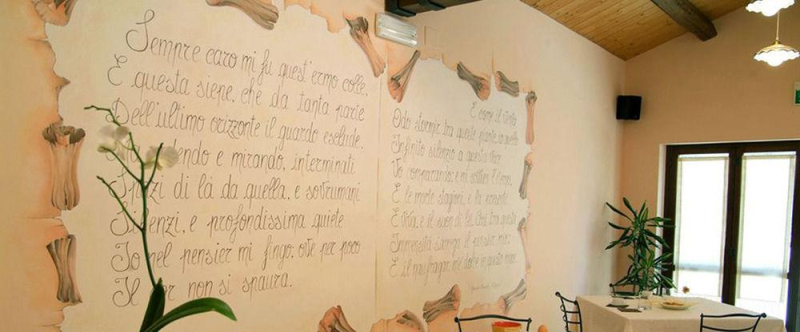 Sempre caro mi fu quest'ermo colle,
E questa siepe, che da tanta parte
Dell'ultimo orizzonte il guardo esclude.
sedendo e mirando, interminati
Spazi di là da quella, e sovrumani
Silenzi, e profondissima quiete
Io nel pensier mi fingo; ove per poco
Il cor non si spaura.
E come il vento
Odo stormir tra queste piante, io quello
Infinito silenzio a questa voce
Vo comparando; e mi sovvien l'eterno,
E le morte stagioni, e la presente
E viva, e il suon di lei. Così tra questa
Immensità s'annega il pensier mio;
E il naufragar m'è dolce in questo mare.